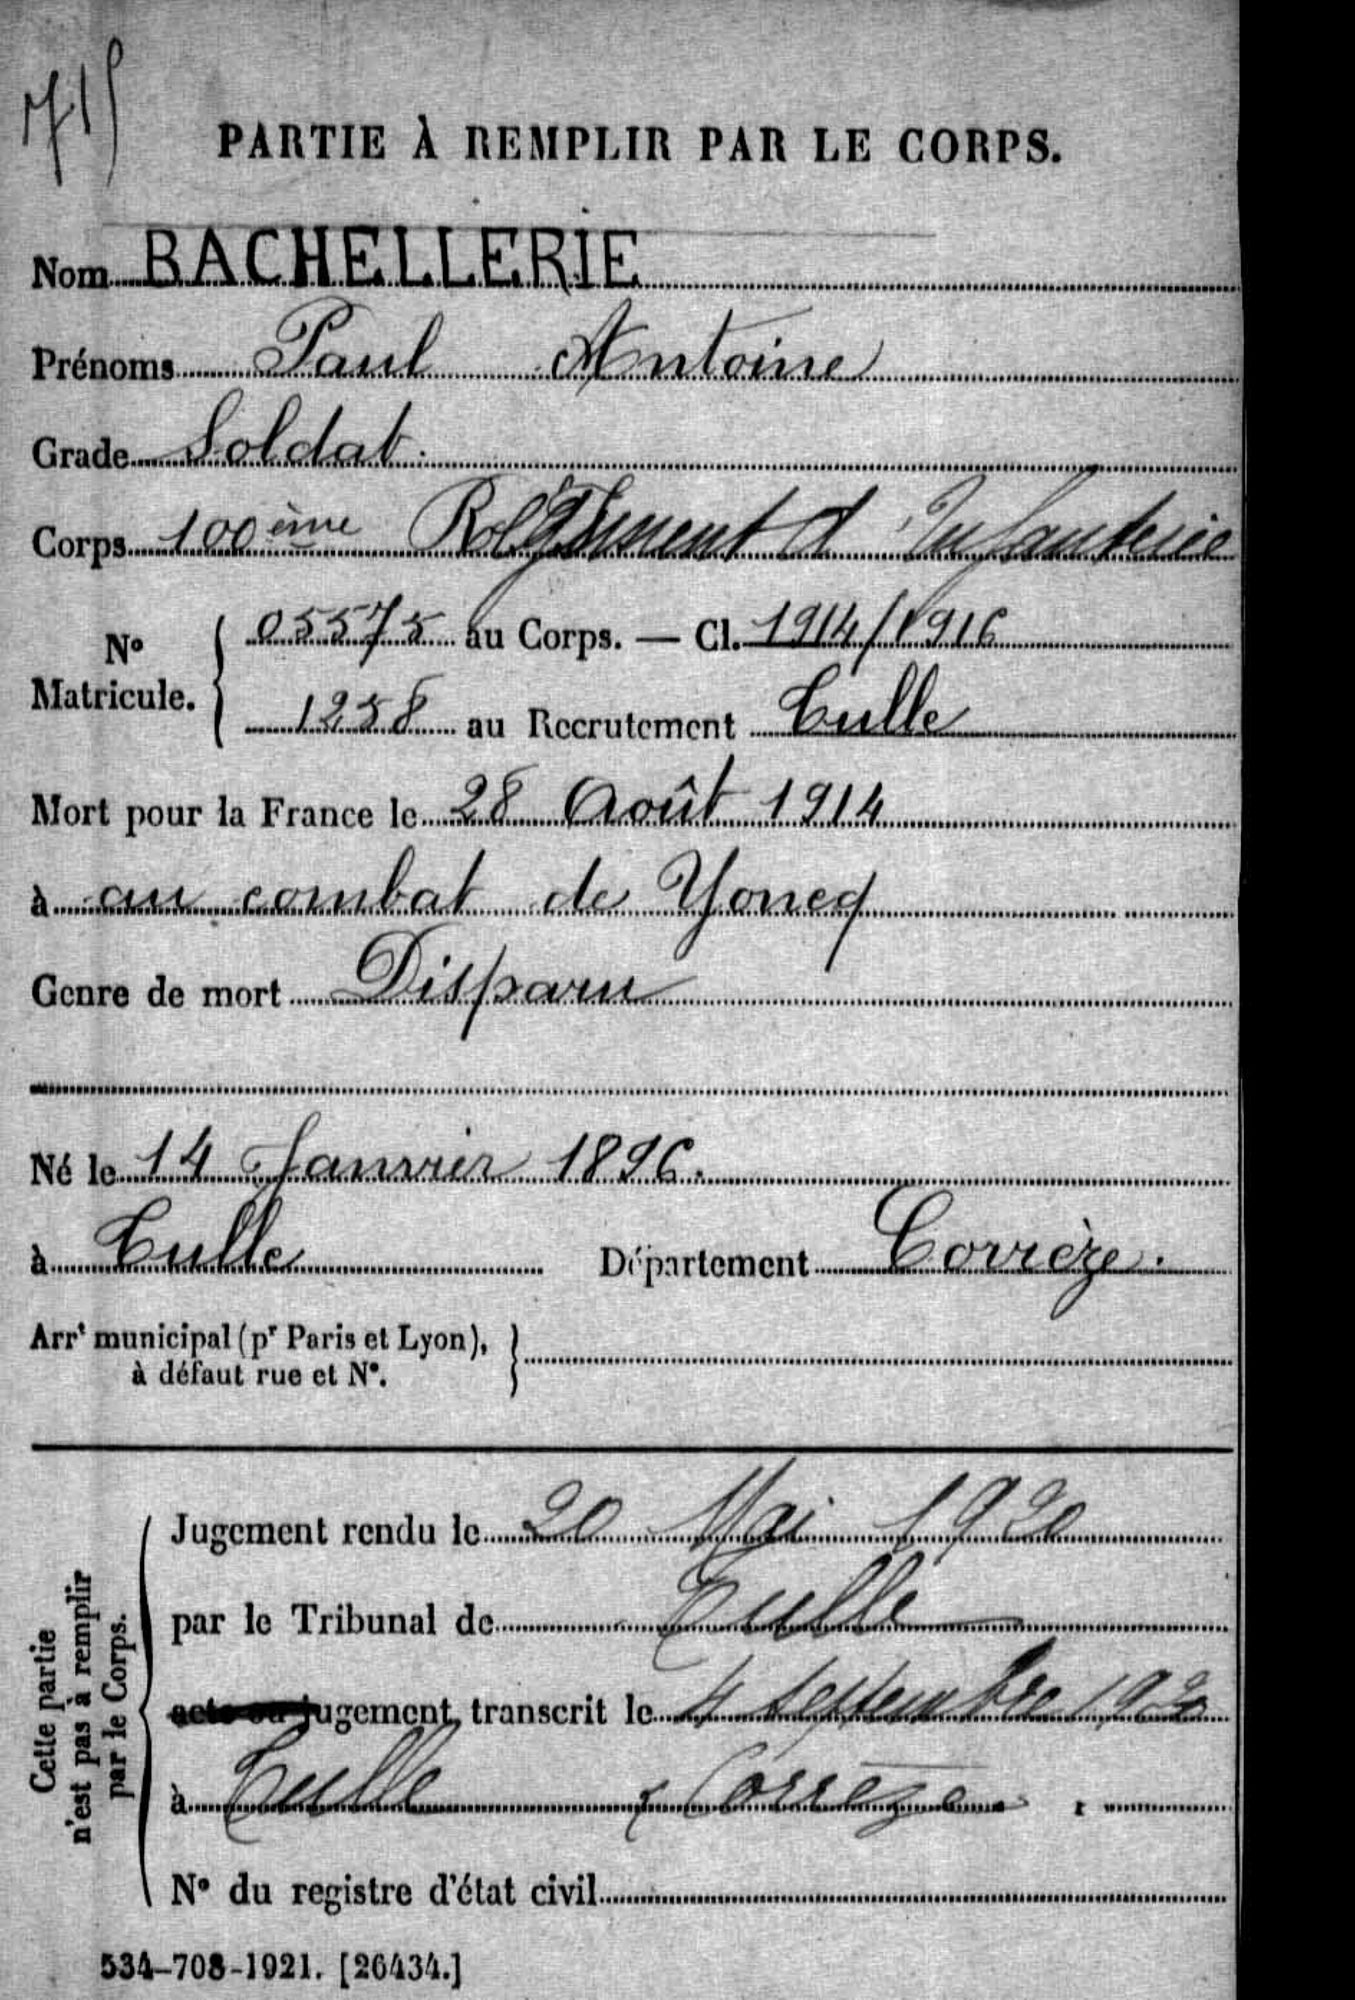 715
PARTIE À REMPLIR PAR LE CORPS.
Nom BACHELLERIE
Prénoms Paul Antoine
Grade Soldat.
Corps 100ème Régiment d'Infanterie
N° Matricule. { 05575 au Corps. — Cl. 1914/1916
1258 au Recrutement Tulle
Mort pour la France le 28 Août 1914
à au combat de Yoncq
Genre de mort Disparu
Né le 14 Janvier 1896.
à Tulle Département Corrèze.
Arrt municipal (pr Paris et Lyon), }
à défaut rue et N°.
Cette partie
n'est pas à remplir
par le Corps.
Jugement rendu le 20 Mai 1920
par le Tribunal de Tulle
acte ou jugement transcrit le 4 septembre 1920
à Tulle Corrèze.
N° du registre d'état civil
534-708-1921. [26434.]